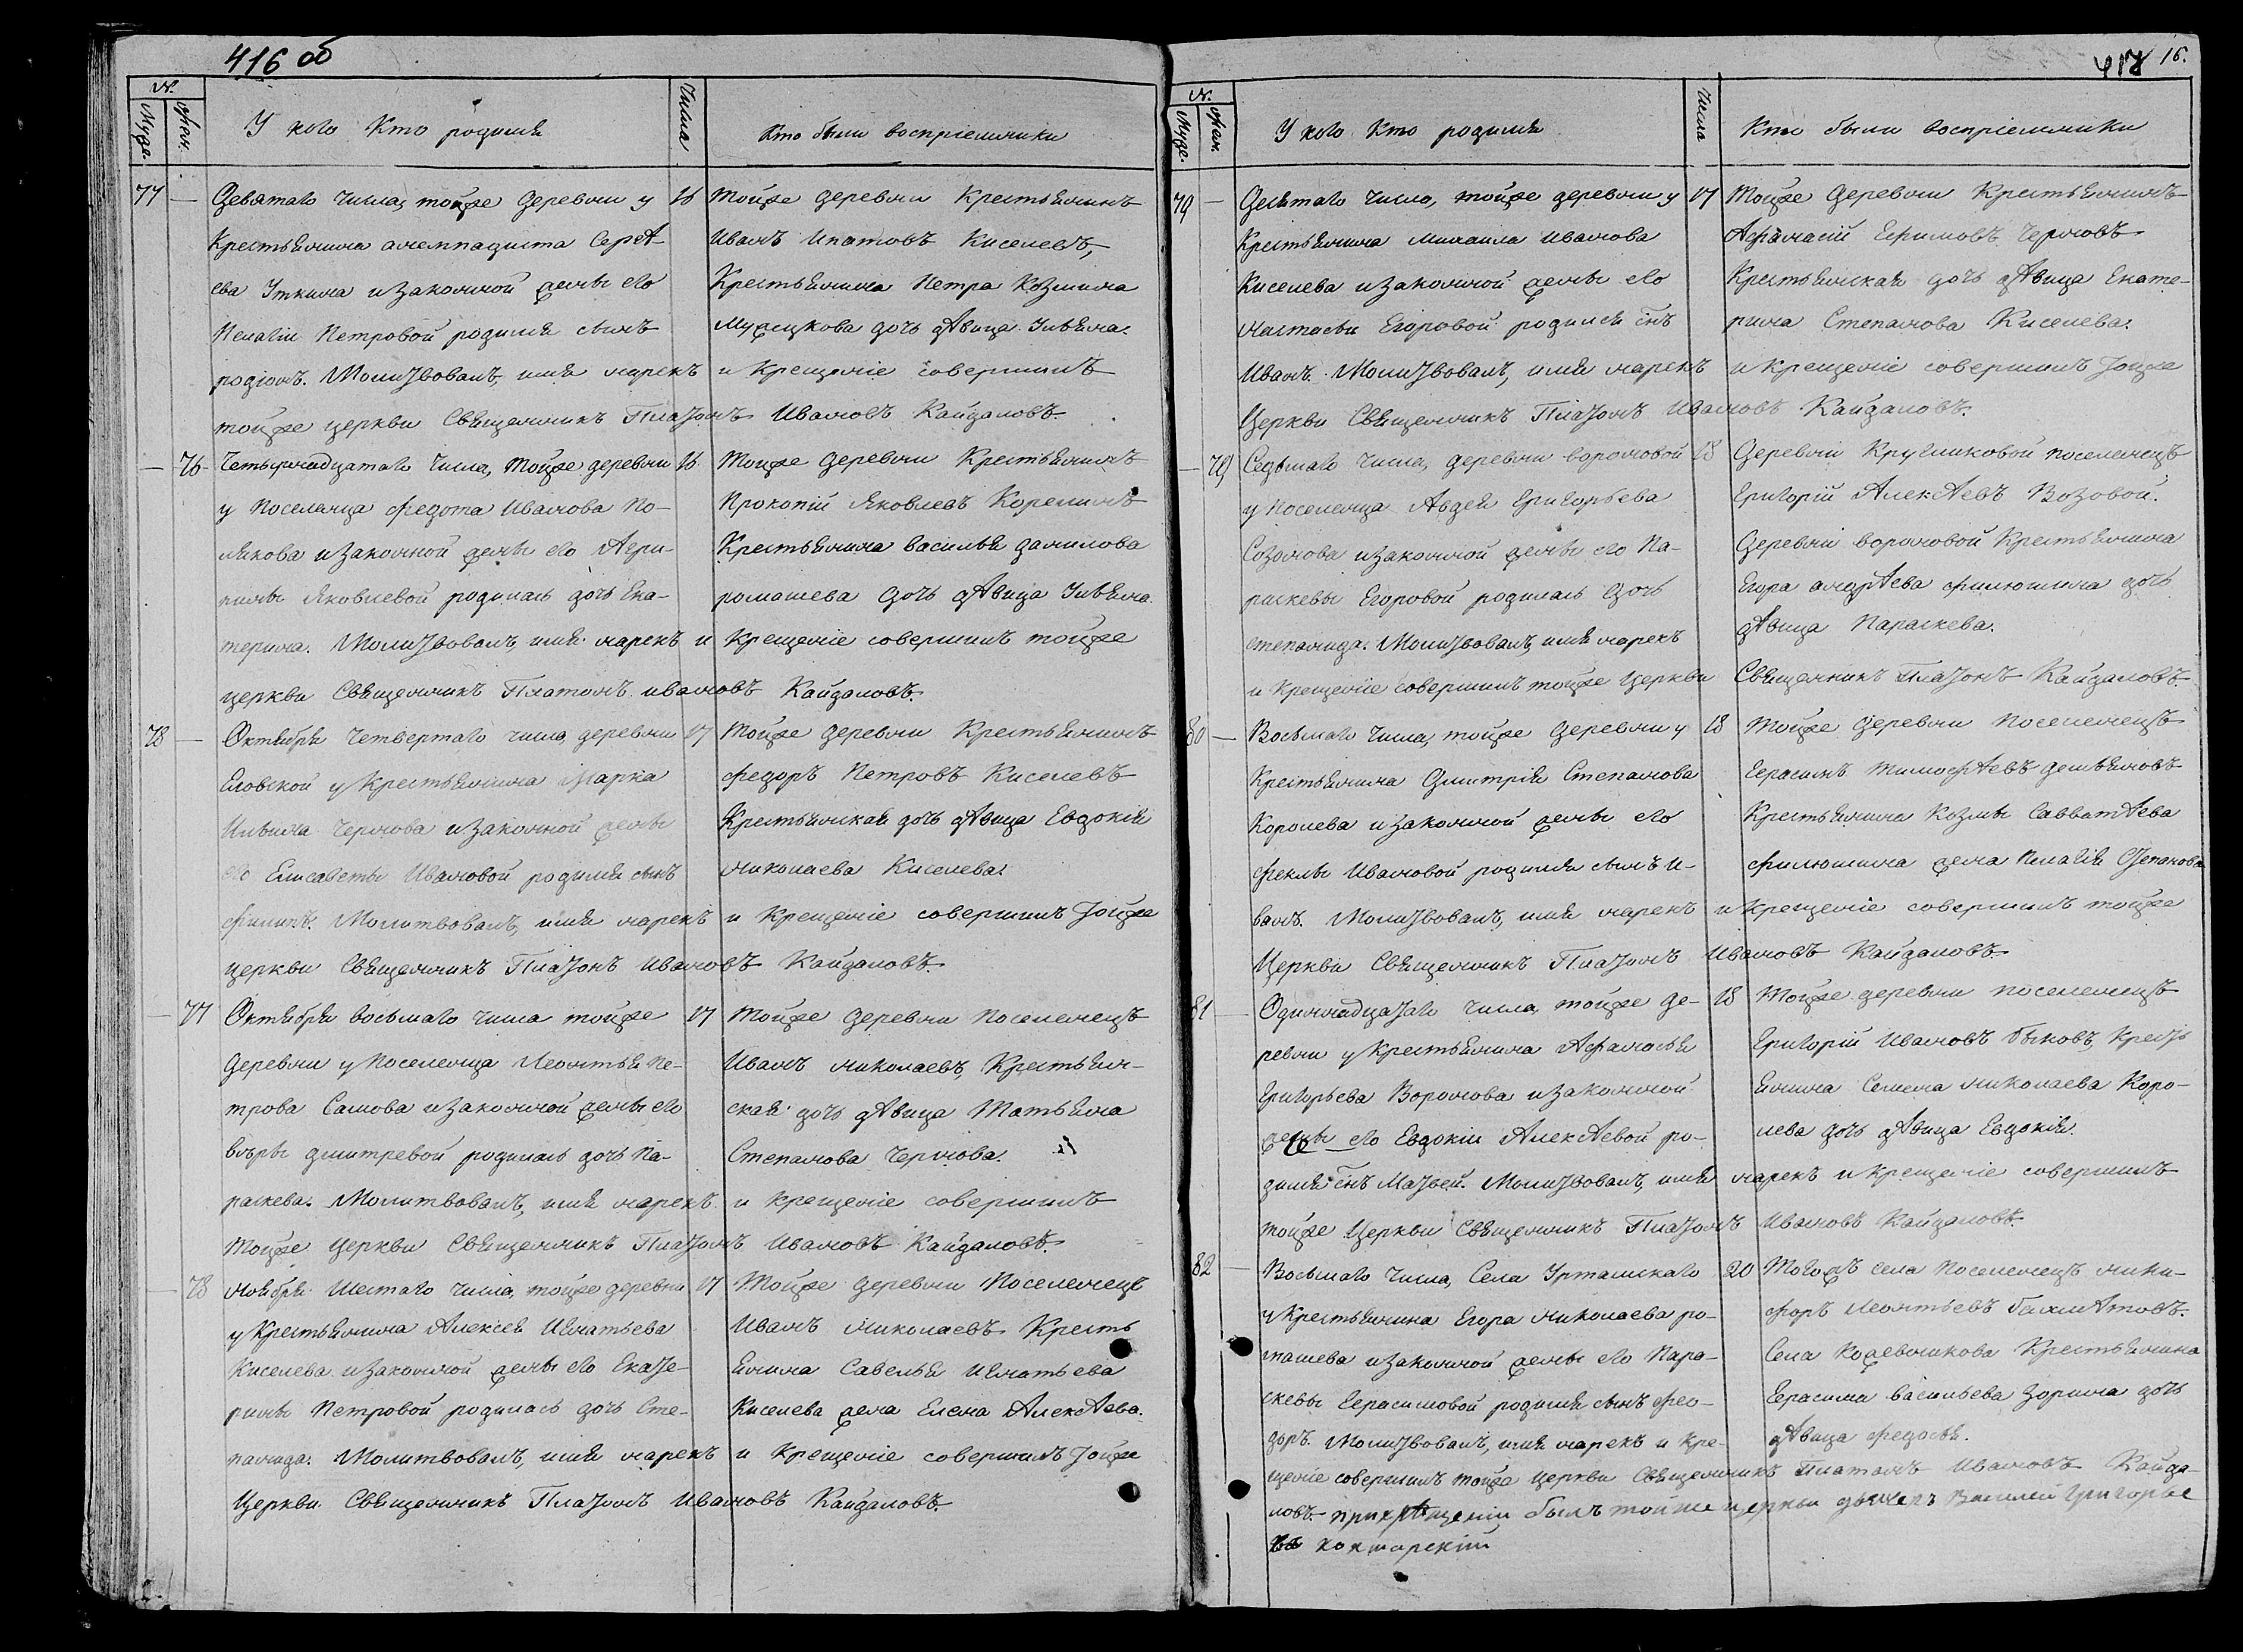 416 об
№.
Муж.
Жен.
У кого Кто родился
Числа
Кто были воспріемники
77 — Девятаго числа, тойже деревни у 16
крестьянина Алемпадиста Сергѣ-
ева Уткина и законной жены его
Пелагіи Петровой родился сынъ
родіонъ. Молитвовалъ, имя нарекъ и крещеніе совершилъ
тойже церкви Священникъ Платонъ Ивановъ Кайдаловъ.
Тойже деревни Крестьянинъ
Иванъ Ипатовъ Киселевъ,
Крестьянина Петра Козмина
дочь дѣвица Ульяна.
— 76 Четырнадцатаго числа, тойже деревни 16
у поселенца Федота Иванова По-
лякова и законной жены его Агри-
пины Яковлевой родилась дочь Ека-
терина. Молитвовалъ, имя нарекъ и крещеніе совершилъ тойже
церкви Священникъ Платонъ Ивановъ Кайдаловъ.
Тойже деревни Крестьянинъ
Прокопій Яковлевъ Корелинъ
Крестьянина Василья Данилова
ромашева дочь дѣвица Ульяна.
78 — Октября четвертаго числа, деревни 17
Еловской у Крестьянина Марка
Ильина Чернова и законной жены
его Елисаветы Ивановой родился сынъ
Филипъ. Молитвовалъ, имя нарекъ и крещеніе совершилъ тойже
церкви Священникъ Платонъ Ивановъ Кайдаловъ.
Тойже деревни Крестьянинъ
Федоръ Петровъ Киселевъ
Крестьянская дочь дѣвица Евдокія
Николаева Киселева.
— 77 Октября восьмаго числа тойже 17
деревни у Поселенца Леонтья Пе-
трова Сашова и законной жены его
Вѣры Дмитревой родилась дочь Па-
раскева. Молитвовалъ, имя нарекъ и крещеніе совершилъ
тойже церкви Священникъ Платонъ Ивановъ Кайдаловъ.
Тойже деревни Поселенецъ
Иванъ Николаевъ, Крестьян-
ская дочь дѣвица Татьяна
Степанова Чернова.
— 78 Ноября Шестаго числа, тойже деревни 17
у Крестьянина Алексея Игнатьева
Киселева и законной жены его Екате-
рины Петровой родилась дочь Сте-
панида. Молитвовалъ, имя нарекъ и крещеніе совершилъ тойже
Церкви Священникъ Платонъ Ивановъ Кайдаловъ.
Тойже деревни Поселенецъ
Иванъ Николаевъ Кресть
янина Савелья Игнатьева
Киселева жена Елена Алексѣева.
417
16.
№.
Муж.
Жен.
У кого Кто родился
Числа
Кто были воспріемники
79 — Десятаго числа, тойже деревни у 17
Крестьянина Михаила Иванова
Киселева и законной жены его
Настасьи Егоровой родился снъ
Иванъ. Молитвовалъ, имя нарекъ и крещеніе совершилъ тойже
Церкви Священникъ Платонъ Ивановъ Кайдаловъ.
Тойже деревни Крестьянинъ
Афанасій Ефимовъ Черновъ
Крестьянская дочь дѣвица Екате-
рина Степанова Киселева.
— 79 Седьмаго числа, деревни Вороновой 18
у Поселенца Авдея Григорьева
Созонова и законной жены его Па-
раскевы Егоровой родилась дочь
Степанида. Молитвовалъ, имя нарекъ
и крещеніе совершилъ тойже церкви Священникъ Платонъ Кайдаловъ.
Деревни Кругликовой поселенецъ
Григорій Алексѣевъ Возовой.
Деревни Вороновой Крестьянина
Егора Андрѣева Филюшина дочь
дѣвица Параскева.
80 — Восьмаго числа, тойже деревни у 18
Крестьянина Дмитрія Степанова
Королева и законной жены его
Феклы Ивановой родился сынъ И-
ванъ. Молитвовалъ, имя нарекъ и крещеніе совершилъ тойже
Церкви Священникъ Платонъ Ивановъ Кайдаловъ.
Тойже деревни Поселенецъ
Герасимъ Тимофѣевъ Демьяновъ
Крестьянина Козмы Савватѣева
Филюшина жена Пелагія Степанова
81 — Одиннадцатаго числа, тойже де- 18
ревни у Крестьянина Афанасья
Григорьева Воронова и законной
жены его Евдокіи Алексѣевой ро-
дился снъ Матвей. Молитвовалъ, имя нарекъ и крещеніе совершилъ
тойже Церкви Священникъ Платонъ Ивановъ Кайдаловъ.
Тойже деревни поселенецъ
Григорій Ивановъ Быковъ, Кресть
янина Семена Николаева Коро-
лева дочь дѣвица Евдокія.
82 — Восьмаго числа, Села Уртамскаго 20
у Крестьянина Егора Николаева ро-
машева и законной жены его Пара-
скевы Герасимовой родился сынъ Фео-
доръ. Молитвовалъ, имя нарекъ и кре-
щеніе совершилъ тойже церкви Священникъ Платонъ Ивановъ Кайда-
ловъ. при крѣщеніи былъ тойже церкви дьячекъ Василей Григорье
въ
Тогожъ села Поселенецъ Ники-
форъ Леонтьевъ Бахмѣтовъ.
Села Кожевникова Крестьянина
Герасима Васильева Зорина дочь
дѣвица Федосья.